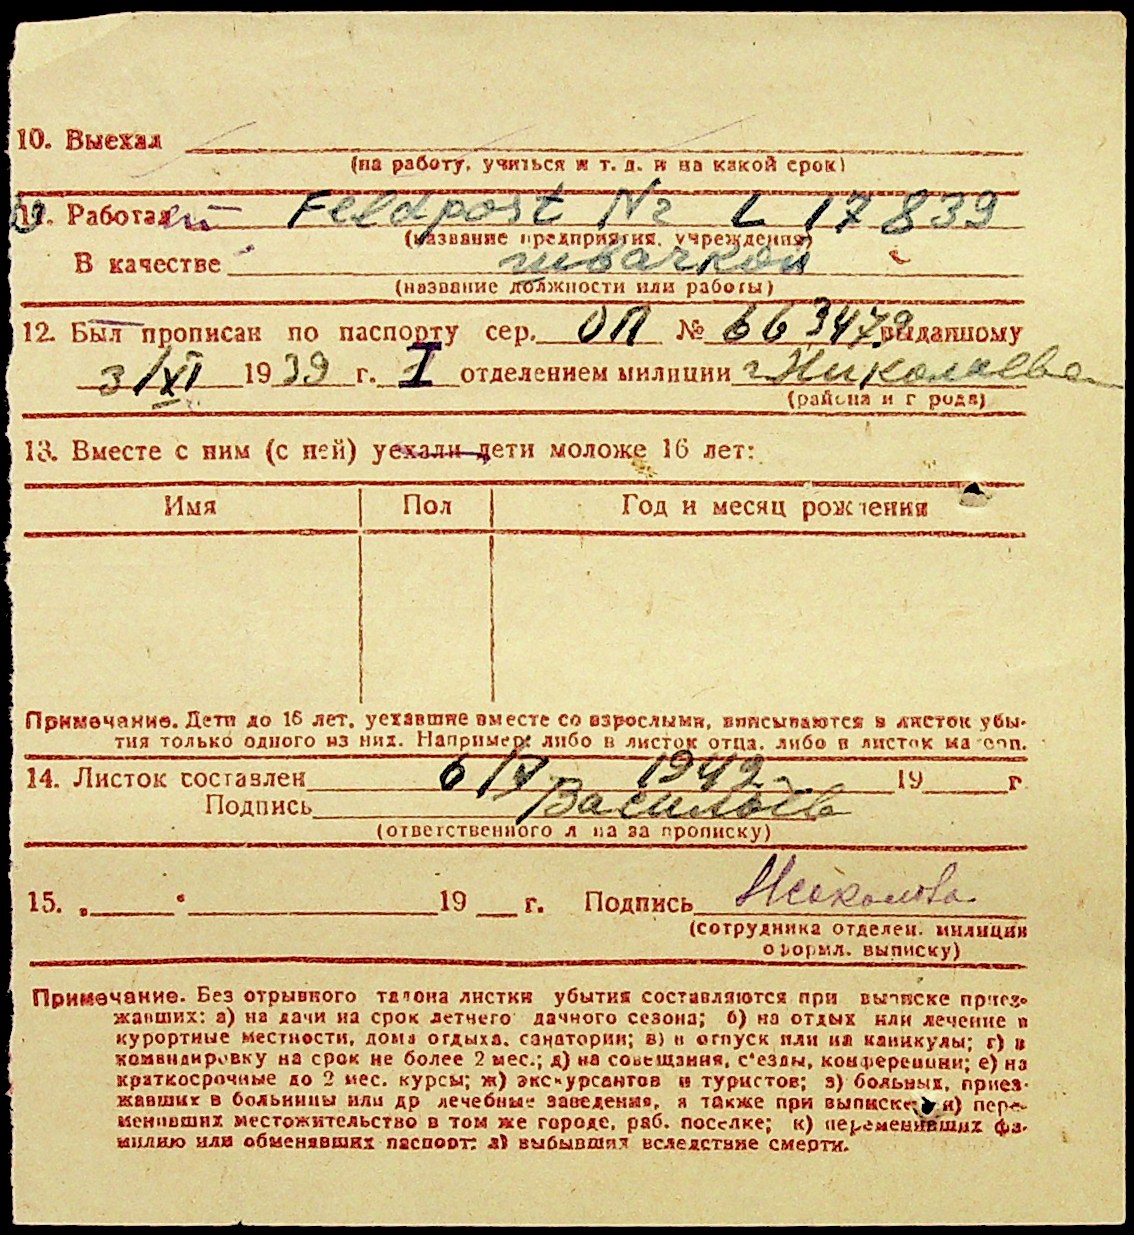 10. Выехал
(на работу, учиться и т. д. и на какой срок)
11. Работал Feldpost Nr L 17839
(название предприятия, учреждения)
В качестве швачкой
(название должности или работы)
12. Был прописан по паспорту сер. ОП № 663479 выданному
3/XI 1939 г. I отделением милиции г. Николаева
(района и города)
13. Вместе с ним (с ней) уехали дети моложе 16 лет:
Имя Пол Год и месяц рождения
Примечание. Дети до 16 лет, уехавшие вместе со взрослыми, вписываются в листок убы-
тия только одного из них. Например: либо в листок отца, либо в листок матери.
14. Листок составлен 6/V 1942 19 г.
Подпись Васильев
(ответственного лица за прописку)
15. „ “ 19 г. Подпись
(сотрудника отделен. милиции
оформл. выписку)
Примечание. Без отрывного талона листки убытия составляются при выписке приез-
жавших: а) на дачи на срок летнего дачного сезона; б) на отдых или лечение в
курортные местности, дома отдыха, санатории; в) в отпуск или на каникулы; г) в
командировку на срок не более 2 мес.; д) на совещания, с'езды, конференции; е) на
краткосрочные до 2 мес. курсы; ж) экскурсантов и туристов; з) больных, приез-
жавших в больницы или др лечебные заведения, а также при выписке и) пере-
менивших местожительство в том же городе, раб. поселке; к) переменивших фа-
милию или обменявших паспорт; л) выбывших вследствие смерти.